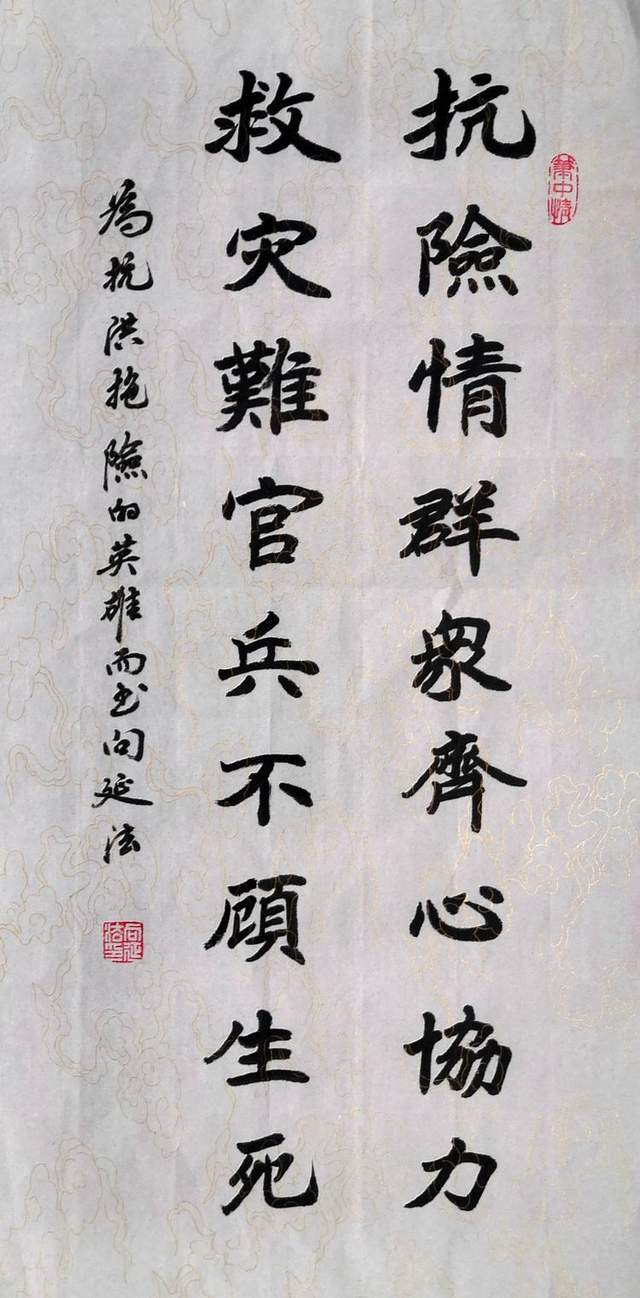 抗險情群衆齊心協力
救灾難官兵不顧生死
為抗洪搶險的英雄而书向延法
向延法印